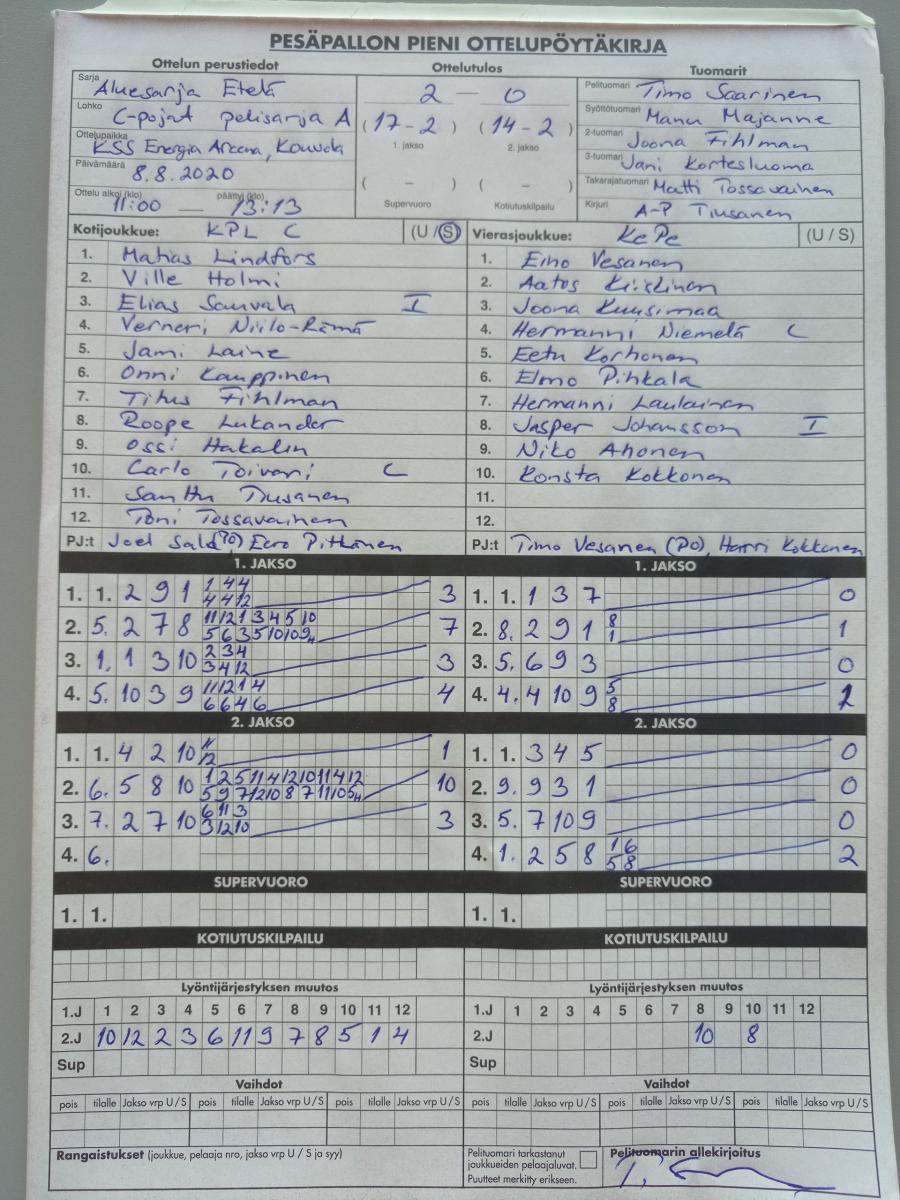 PESÄPALLON PIENI OTTELUPÖYTÄKIRJA
Ottelun perustiedot Ottelutulos Tuomarit
Sarja Aluesarja Etelä 2 — 0 Pelituomari Timo Saarinen
Lohko C-pojat pelisarja A (17-2) (14-2) Syöttötuomari Manu Majanne
1. jakso 2. jakso
Ottelupaikka KSS Energia Areena, Kouvola 2-tuomari Joona Fihlman
Päivämäärä 8.8.2020 3-tuomari Jani Kortesluoma
( – ) ( – ) Takarajatuomari Matti Tossavainen
Ottelu alkoi (klo) 11:00 — päättyi (klo) 13:13 Supervuoro Kotiutuskilpailu Kirjuri A-P Tiusanen
Kotijoukkue: KPL C (U / S) Vierasjoukkue: KePe (U / S)
1. Matias Lindfors 1. Eino Vesanen
2. Ville Holmi 2. Aatos
3. Elias Sauvala I 3. Joona Kuusimaa
4. Verneri Niilo-Rämä 4. Hermanni Niemelä C
5. Jami Laine 5. Eetu Korhonen
6. Onni Kauppinen 6. Elmo Pihkala
7. Titus Fihlman 7. Hermanni Laulainen
8. Roope Lukander 8. Jasper Johansson I
9. Ossi Hakalin 9. Niko Ahonen
10. Carlo Toivari C 10. Konsta Kokkonen
11. Santtu Tiusanen 11.
12. Toni Tossavainen 12.
PJ:t Joel Salo (PO), Eero Pitkänen PJ:t Timo Vesanen (PO), Harri Kokkonen
1. JAKSO 1. JAKSO
1. 1. 2 9 1 1 4 4 3 1. 1. 1 3 7 0
4 4 12
2. 5. 2 7 8 11 12 1 3 4 5 10 7 2. 8. 2 9 1 8 1
5 6 3 5 10 10 9 1
3. 1. 1 3 10 2 3 4 3 3. 5. 6 9 3 0
3 4 12
4. 5. 10 3 9 11 12 1 4 4 4. 4. 4 10 9 5 1
6 6 4 6 8
2. JAKSO 2. JAKSO
1. 1. 4 2 10 11 1 1. 1. 3 4 5 0
12
2. 6. 5 8 10 1 2 5 11 4 12 10 11 4 12 10 2. 9. 9 3 1 0
5 9 7 12 10 8 7 11 10 5
3. 7. 2 7 10 6 11 3 3 3. 5. 7 10 9 0
3 12 10
4. 6. 4. 1. 2 5 8 1 6 2
5 8
SUPERVUORO SUPERVUORO
1. 1. 1. 1.
KOTIUTUSKILPAILU KOTIUTUSKILPAILU
Lyöntijärjestyksen muutos Lyöntijärjestyksen muutos
1.J 1 2 3 4 5 6 7 8 9 10 11 12 1.J 1 2 3 4 5 6 7 8 9 10 11 12
2.J 10 12 2 3 6 11 9 7 8 5 1 4 2.J 10 8
Sup Sup
Vaihdot Vaihdot
pois tilalle Jakso vrp U / S pois tilalle Jakso vrp U / S pois tilalle Jakso vrp U / S pois tilalle Jakso vrp U / S pois tilalle Jakso vrp U / S pois tilalle Jakso vrp U / S
Rangaistukset (joukkue, pelaaja nro, jakso vrp U / S ja syy) Pelituomari tarkastanut Pelituomarin allekirjoitus
joukkueiden pelaajaluvat.
Puutteet merkitty erikseen.